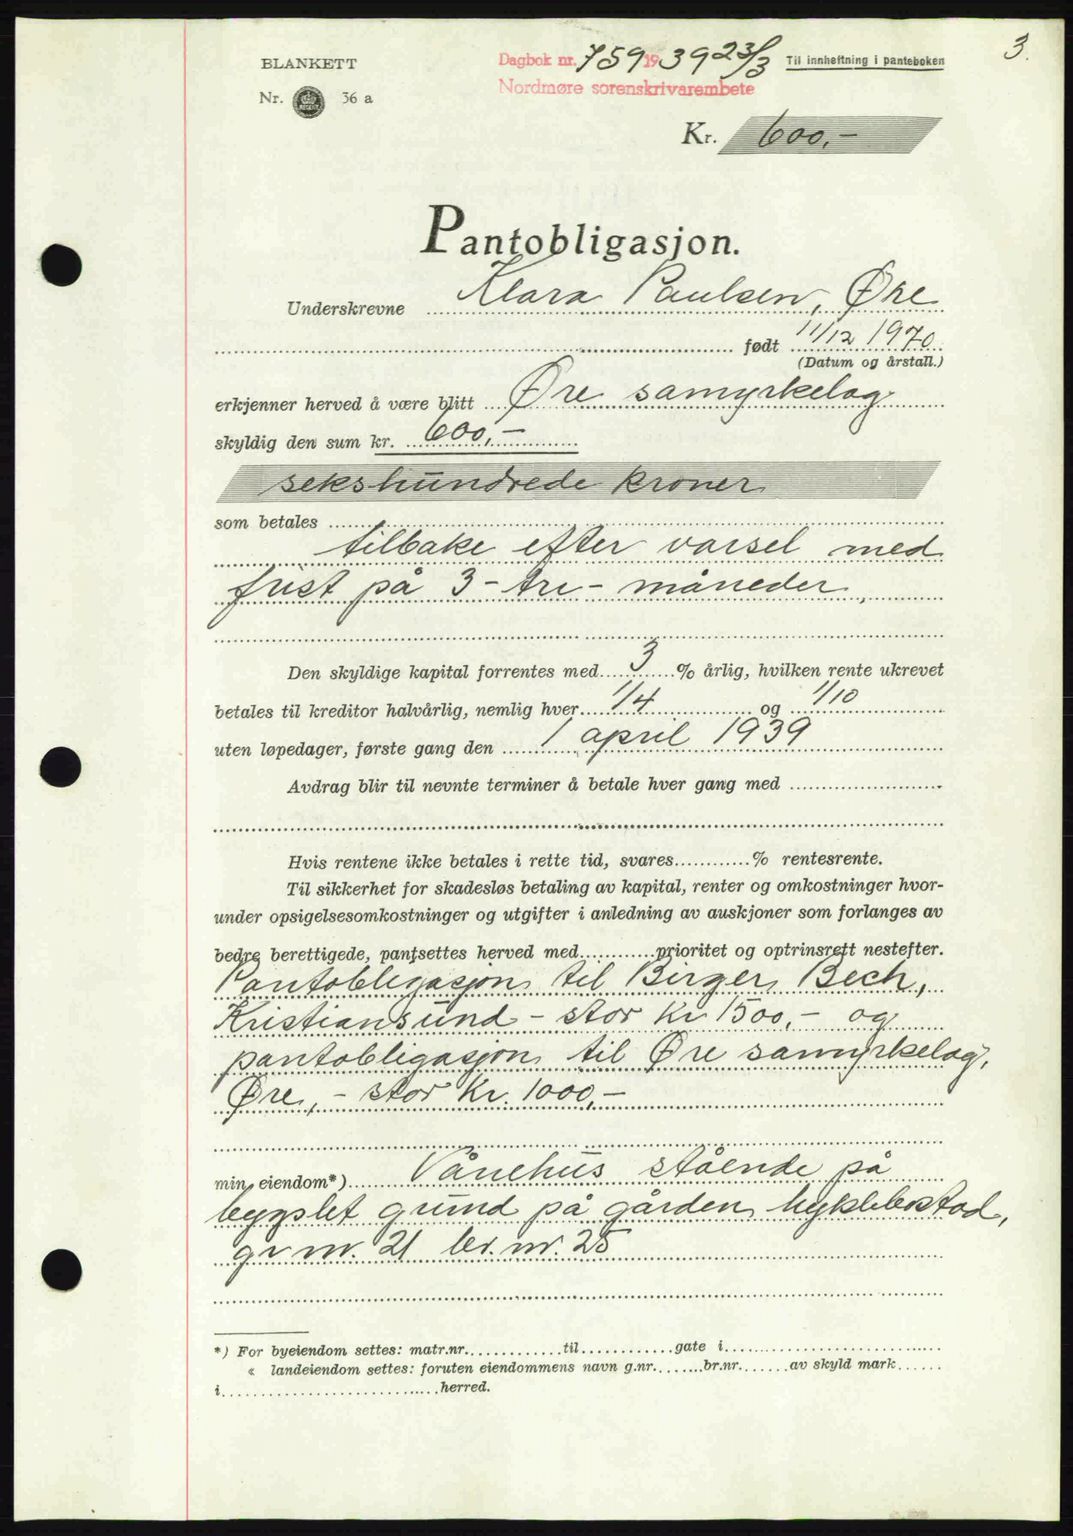 3.
BLANKETT
Nr. 36 a
Dagbok nr. 759 1939 23/3
Nordmøre sorenskrivarembete
Til innheftning i panteboken
Kr. 600,-
Pantobligasjon.
Underskrevne Klara Paulsen, Øre
født 11/12 1970
(Datum og årstall.)
erkjenner herved å være blitt Øre samyrkelag
skyldig den sum kr. 600,-
sekshundrede kroner
som betales
tilbake efter varsel med
frist på 3 - tre - måneder.
Den skyldige kapital forrentes med 3 % årlig, hvilken rente ukrevet
betales til kreditor halvårlig, nemlig hver 1/4 og 1/10
uten løpedager, første gang den 1 april 1939
Avdrag blir til nevnte terminer å betale hver gang med
Hvis rentene ikke betales i rette tid, svares % rentesrente.
Til sikkerhet for skadesløs betaling av kapital, renter og omkostninger hvor-
under opsigelsesomkostninger og utgifter i anledning av auskjoner som forlanges av
bedre berettigede, pantsettes herved med prioritet og optrinsrett nestefter.
Pantobligasjon til Birger Bech,
Kristiansund - stor kr 1500,- og
pantobligasjon til Øre samyrkelag,
Øre, - stor kr. 1000,-
min eiendom*) Vånehus stående på
bygslet grund på gården
gr nr. 21 br. nr. 25
*) For byeiendom settes: matr.nr. til gate i
« landeiendom settes: foruten eiendommens navn g.nr. br.nr. av skyld mark
i herred.